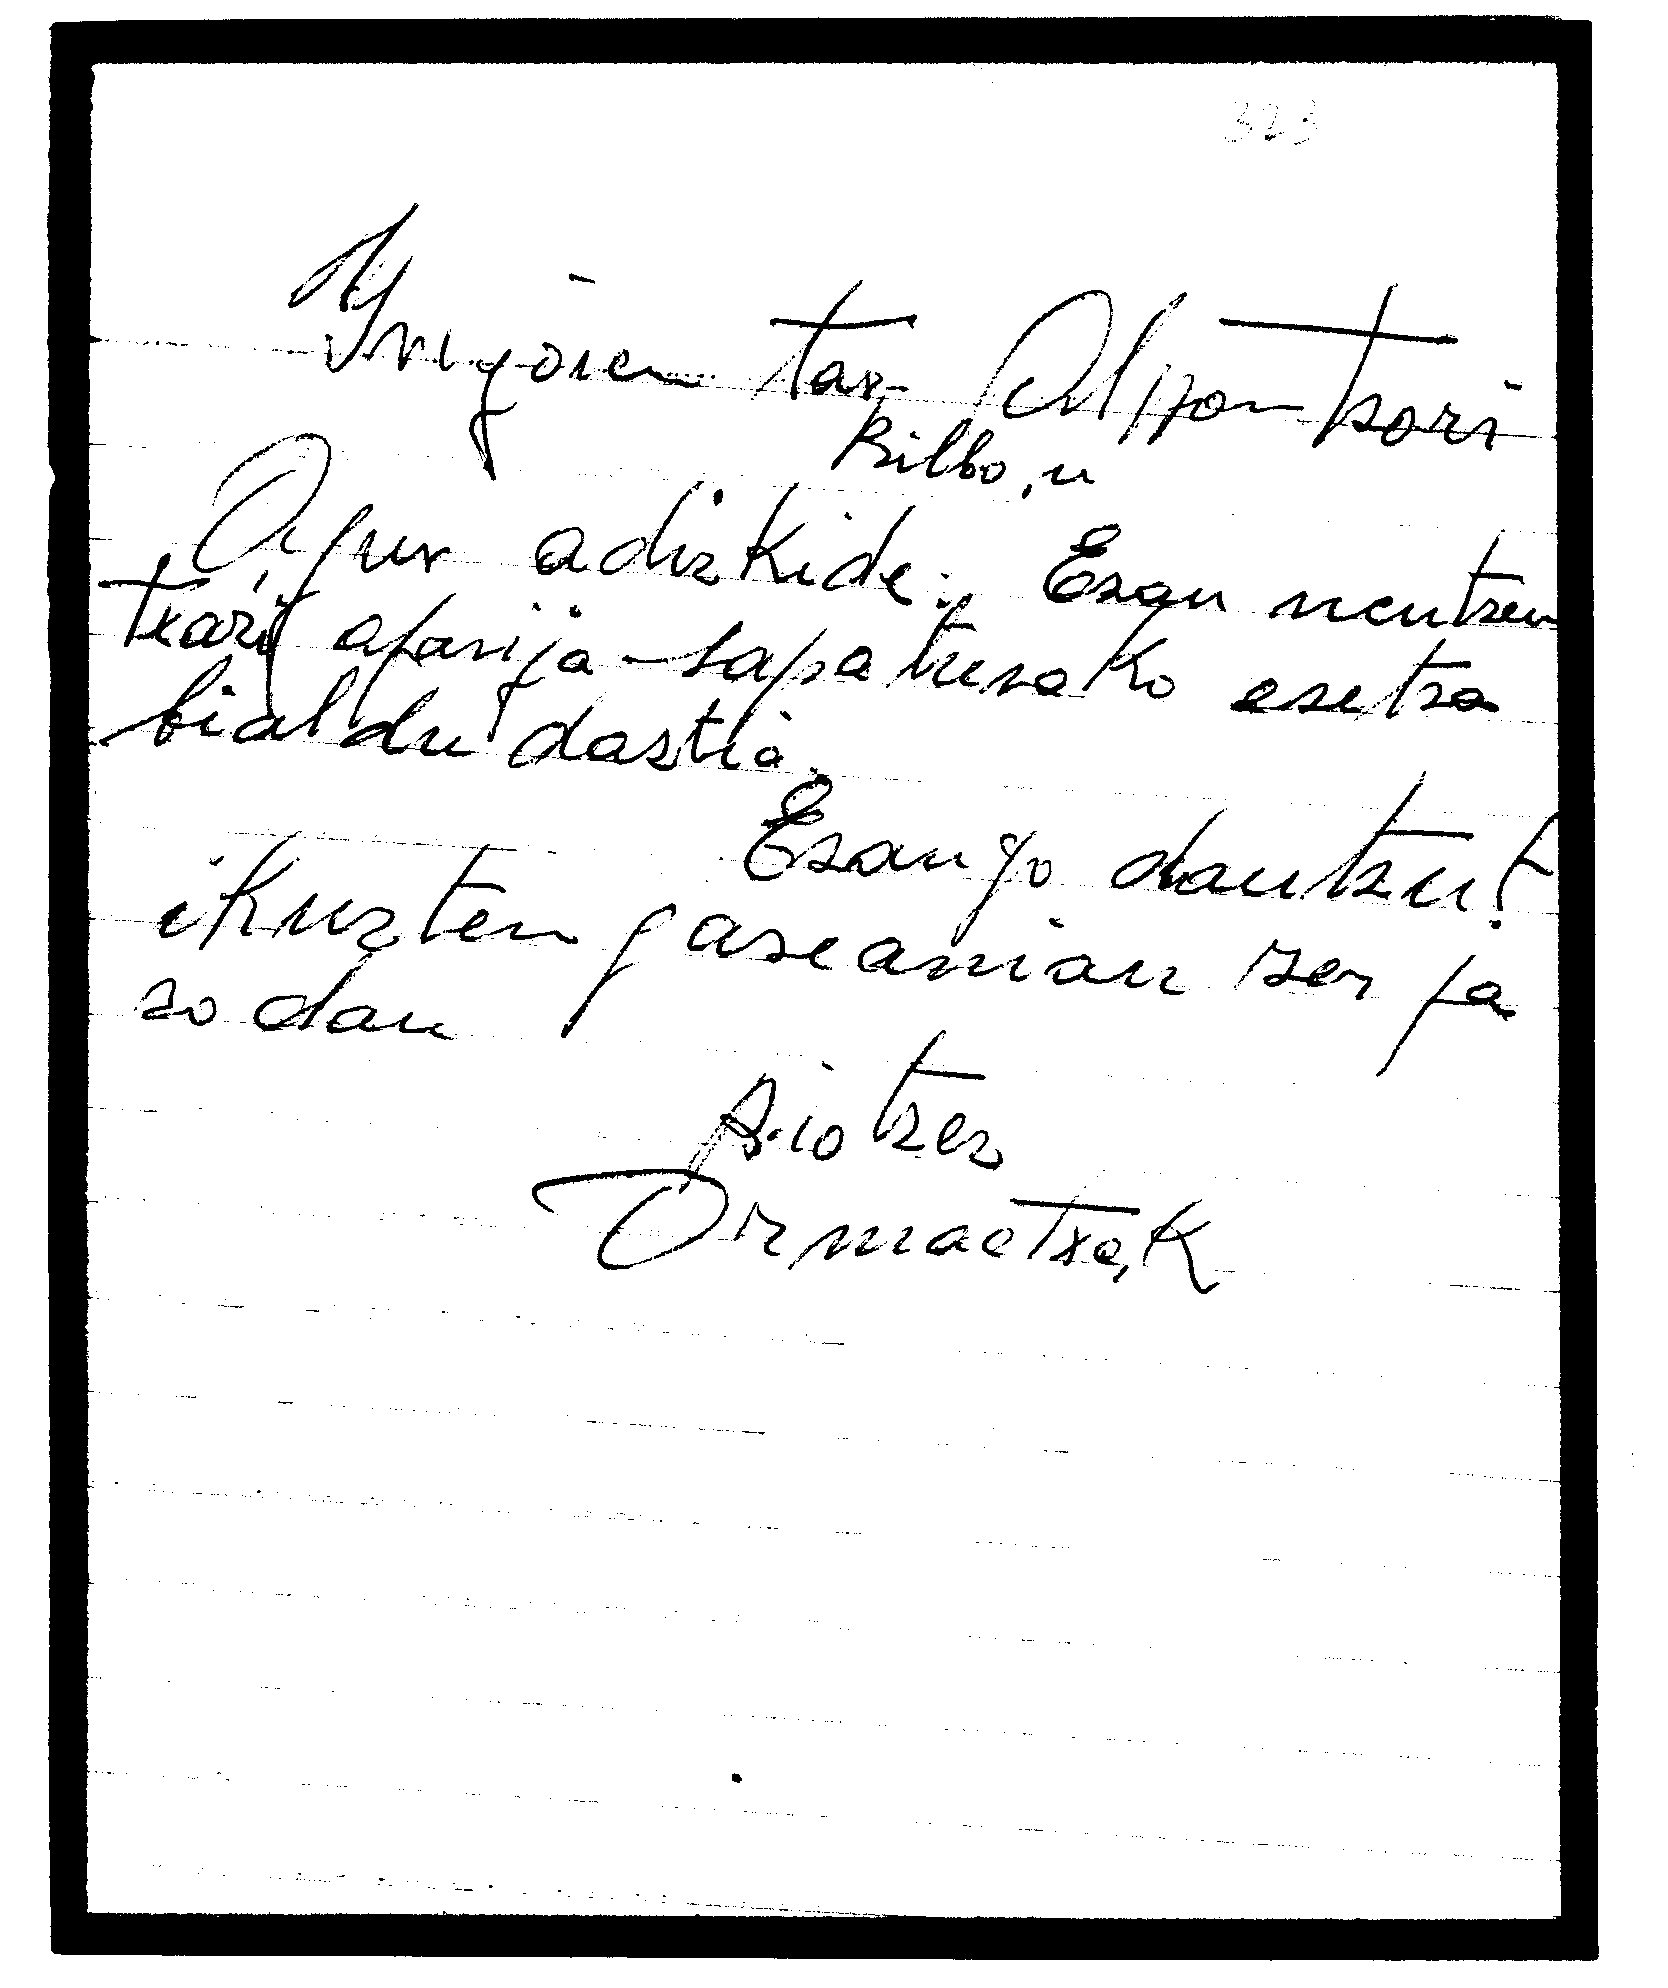 323
Irigōien tar Alpontsori
Bilbo,n
Agur adizkide: Esan neutzun
txaŕi afarija-sapatuvako esetsa
bialdu dastia.
Esango dautzut
ikuzten gaseanian zer ja
zo dan
Biotzez
Ormaetxe,k